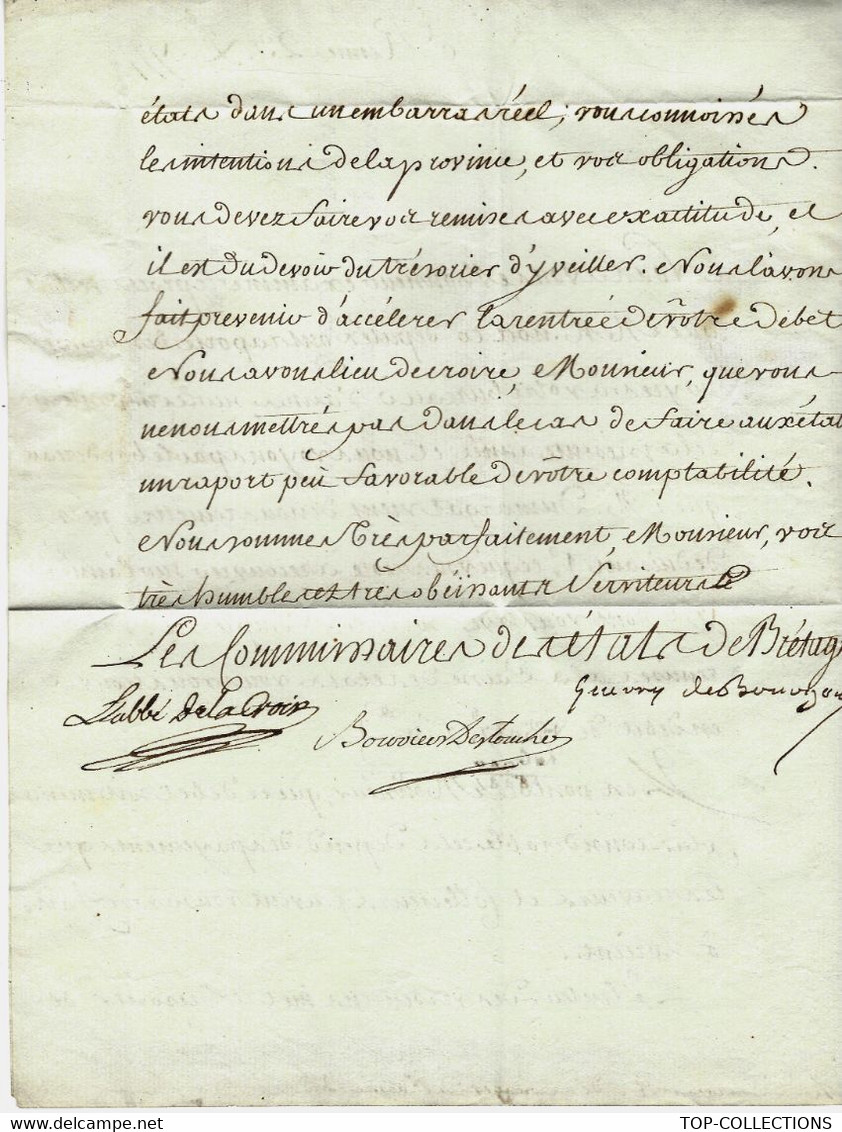 états dans un embarras réel; vous connoissés
les intentions de la province, et vos obligations.
vous devez faire vos remises avec exactitude, et
il est du devoir du trésorier d'y veiller. Nous l'avons
fait prevenir d'accélerer la rentrée de vôtre debet
Nous avons lieu de croire, Monsieur, que vous
ne nous mettrés pas dans le cas de faire aux état
un raport peu favorable de vôtre comptabilité.
Nous sommes très parfaitement, Monsieur, vos
très humbles et tres obéïssants Serviteurs
Les Commissaires des états de Bretag
L'abbé de la Croix
Bouvier Destouches
de
TOP-COLLECTIONS